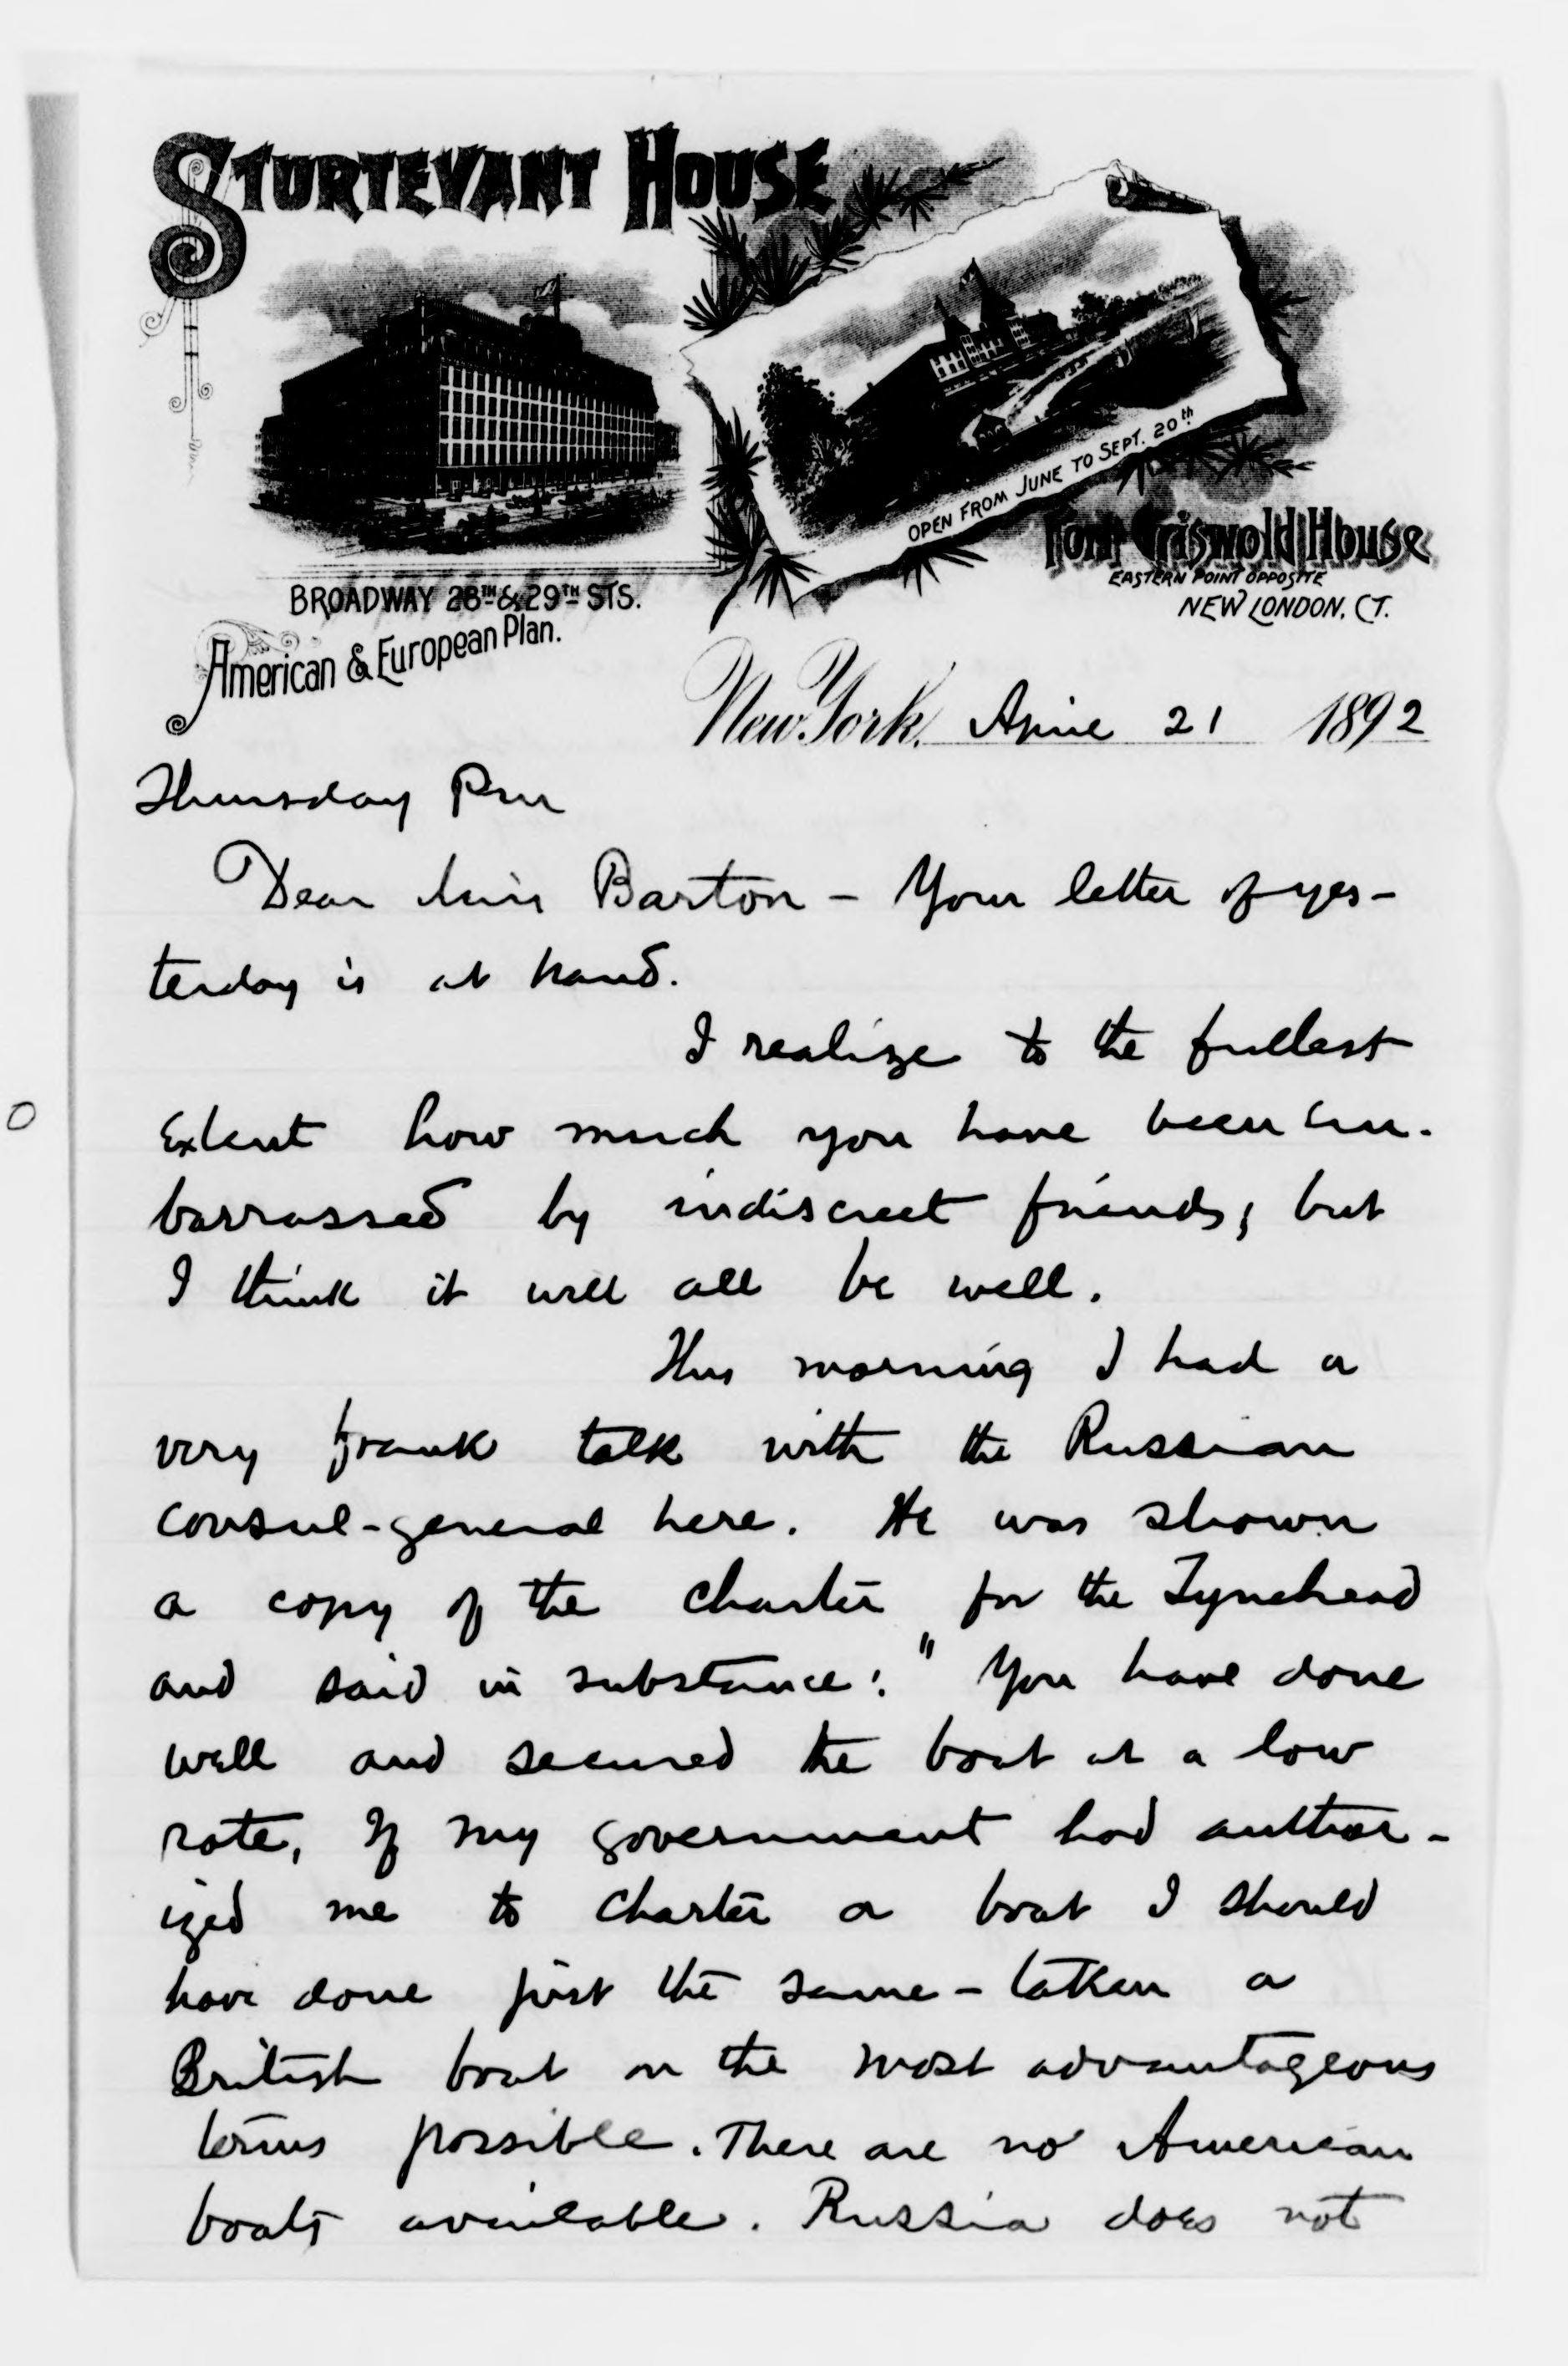 STURTEVANT HOUSE
OPEN FROM JUNE TO SEPT. 20th
Fort Griswold House
EASTERN POINT OPPOSITE
NEW LONDON, CT.
BROADWAY 28TH & 29TH STS.
American & European Plan.
New York, April 21 1892
Thursday Pm
Dear Miss Barton - Your letter of yes-
terday is at hand.
I realize to the fullest
extent how much you have been em-
barrassed by indiscreet friends, but
I think it will all be well.
This morning I had a
very frank talk with the Russian
consul-general here. He was shown
a copy of the charter for the Tynehead
and said in substance: "You have done
well and secured the boat at a low
rate, If my government had author-
ized me to charter a boat I should
have done just the same - taken a
British boat on the most advantageous
terms possible. There are no American
boats available. Russia does not